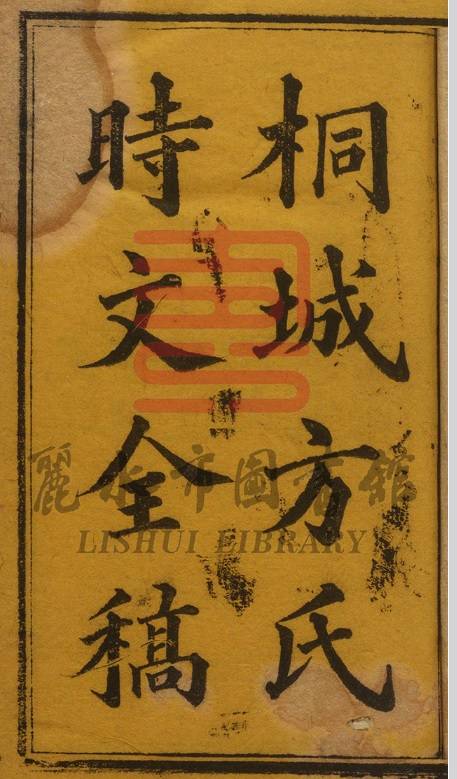 桐城方氏
時文全稿
麗水市圖書館
LISHUI LIBRARY